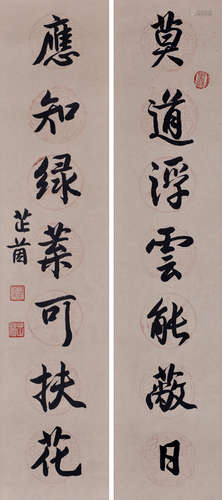 莫道浮雲能蔽日
應知绿葉可扶花
芷茵